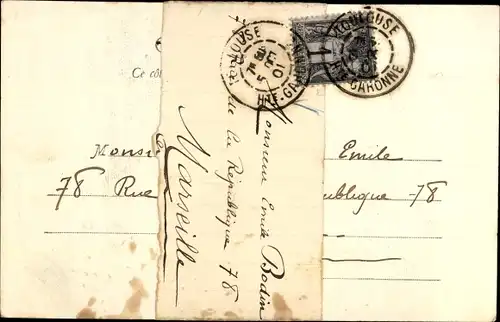 TOULOUSE
Hte-GARONNE
1
TOULOUSE
Hte-GARONNE
Ce côt
Monsi Emile
78 Rue publique 78
Monsieur Emile Bodin
Rue de la République 78
Marseille